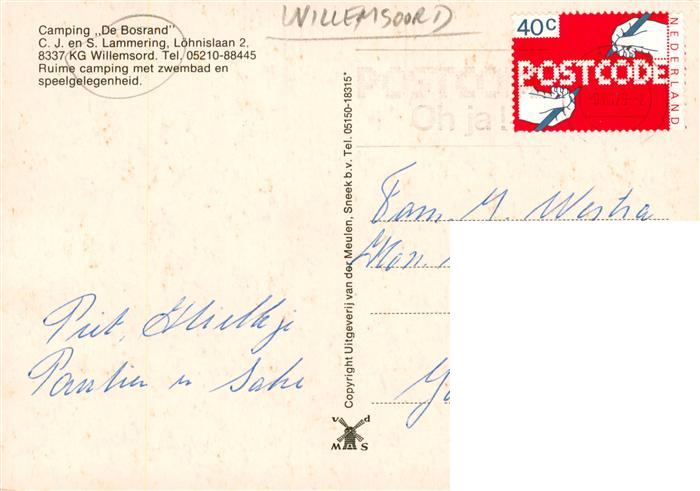 WILLEMSOORD
Camping „De Bosrand”
C. J. en S. Lammering, Löhnislaan 2,
8337 KG Willemsord. Tel. 05210-88445
Ruime camping met zwembad en
speelgelegenheid.
40c
POSTCODE
NEDERLAND
POSTCODE
Oh ja!
Copyright Uitgeverij van der Meulen, Sneek b.v. Tel. 05150-18315*
Fam. Y. Westra
Piet,
en
v d
W M S